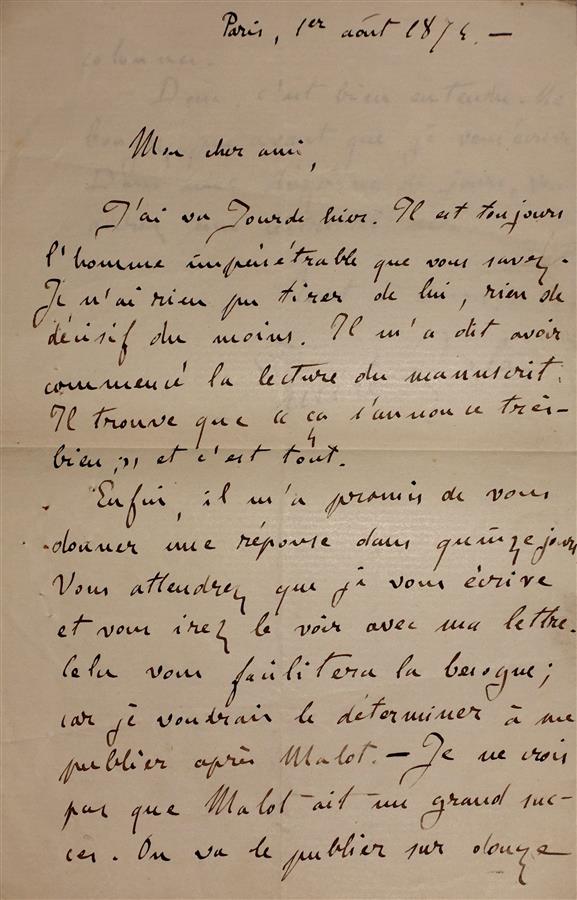 Paris, 1er août 187 . —
Mon cher ami,
J'ai vu Jourde hier. Il est toujours
l'homme impénétrable que vous savez.
Je n'ai rien pu tirer de lui, rien de
décisif du moins. Il m'a dit avoir
commencé la lecture du manuscrit.
Il trouve que « ça s'annonce très-
bien », et c'est tout.
Enfin, il m'a promis de vous
donner une réponse dans quinze jours
Vous attendrez que je vous écrive
et vous irez le voir avec ma lettre.
Cela vous facilitera la besogne;
car je voudrais le déterminer à me
publier après Malot. — Je ne crois
pas que Malot ait un grand suc-
cès. On va le publier sur douze
colonnes.
Donc, c'est bien entendu.
que je vous écrive